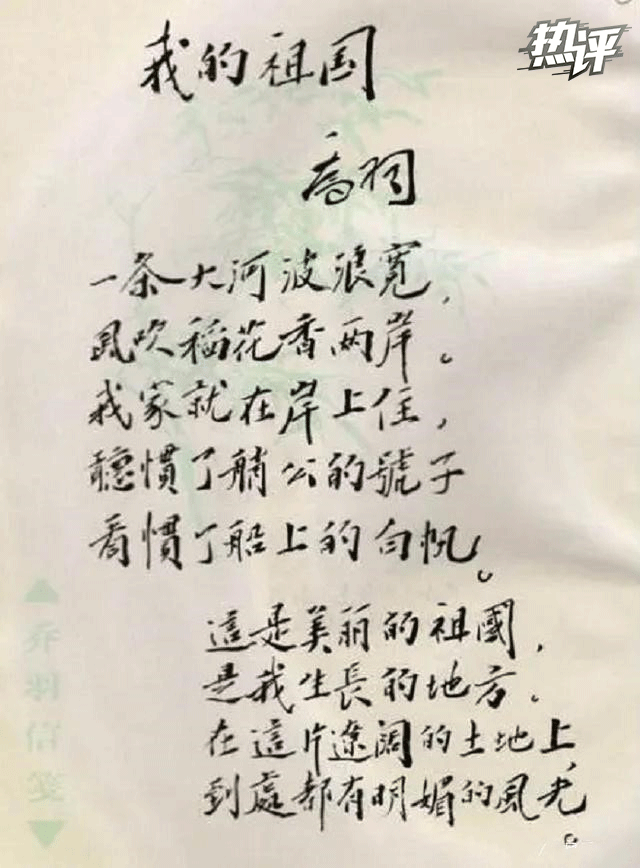 热评
我的祖国
喬羽
一条大河波浪寬，
風吹稻花香两岸。
我家就在岸上住，
聽慣了艄公的號子
看慣了船上的白帆。
這是美丽的祖國，
是我生長的地方。
在這片遼阔的土地上，
到處都有明媚的風光。
乔羽信笺